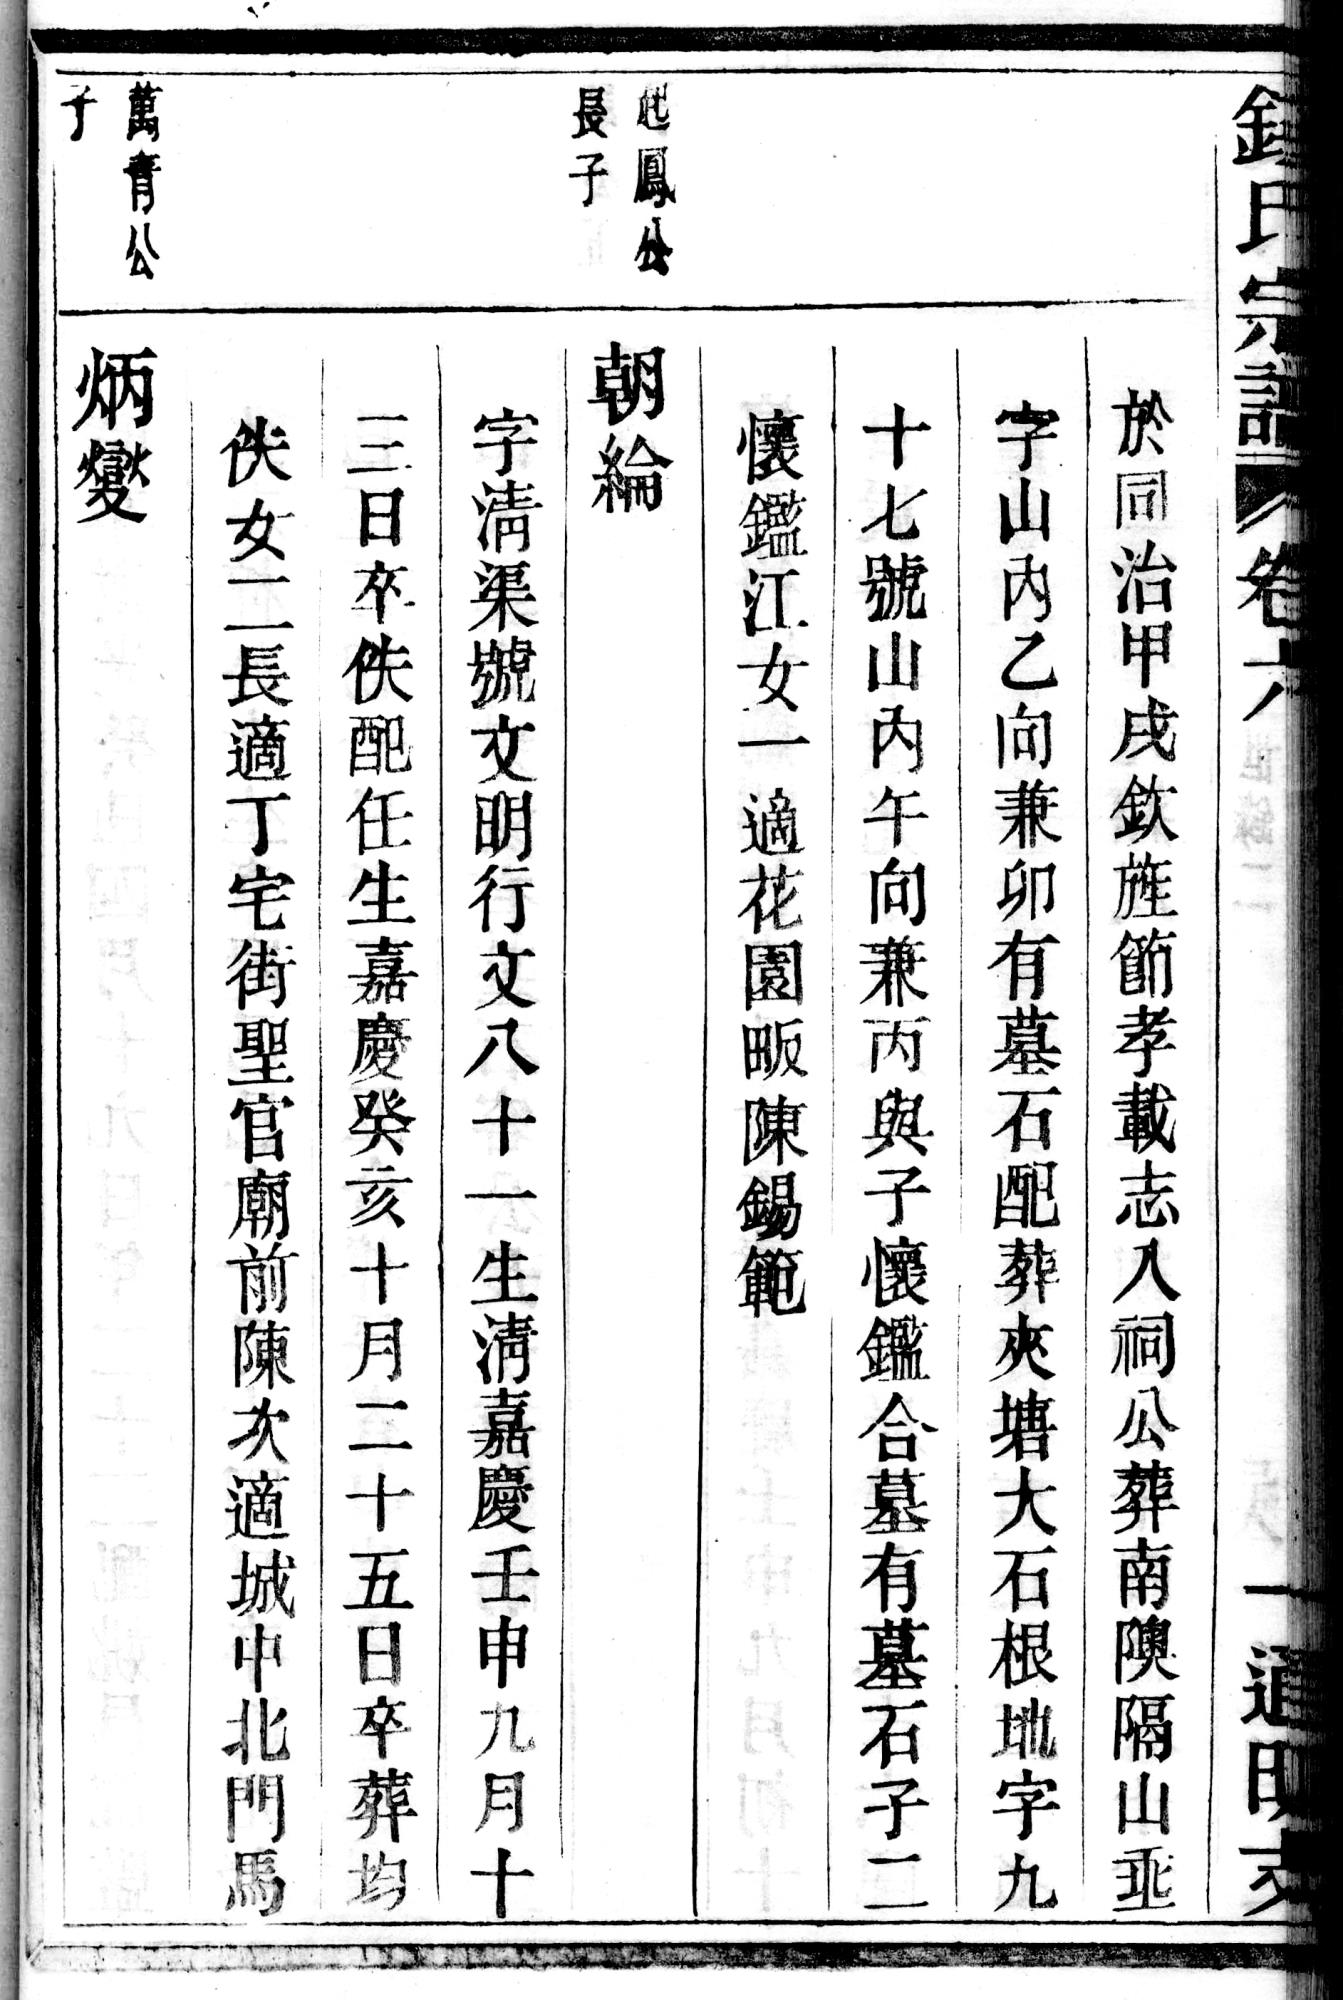 鍾氏宗譜 卷六 一 道明支
於同治甲戌欽旌節孝載志入祠公葬南隩隔山乖
字山內乙向兼卯有墓石配葬夾塘大石根地字九
十七號山內午向兼丙與子懷鑑合墓有墓石子二
懷鑑江女一適花園畈陳錫範
起鳳公
長子
朝綸
字淸渠號文明行文八十一生淸嘉慶壬申九月十
三日卒佚配任生嘉慶癸亥十月二十五日卒葬均
佚女二長適丁宅街聖官廟前陳次適城中北門馬
萬青公
子
炳燮